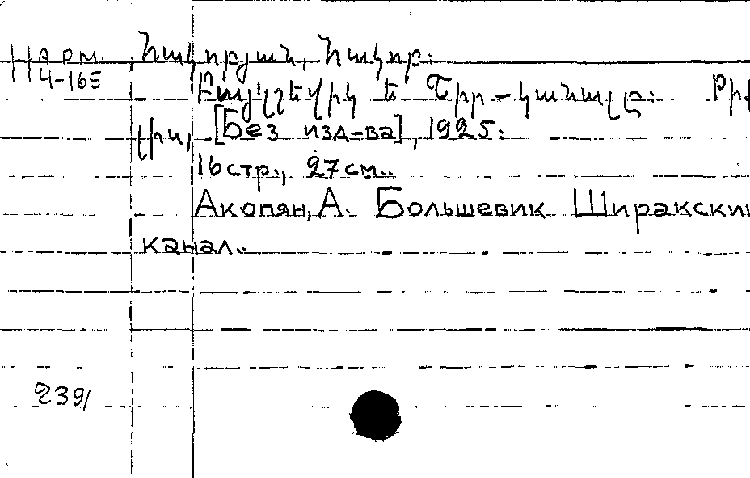 Нарм. Հակոբյան, Հակոբ:
4-16Е Բալշևիկ է Շիր-կանալը: Թիֆ
լիս, [Без изд-ва], 1925:
16стр., 27см..
Акопян, А. Большевик Ширакский
канал..
239/